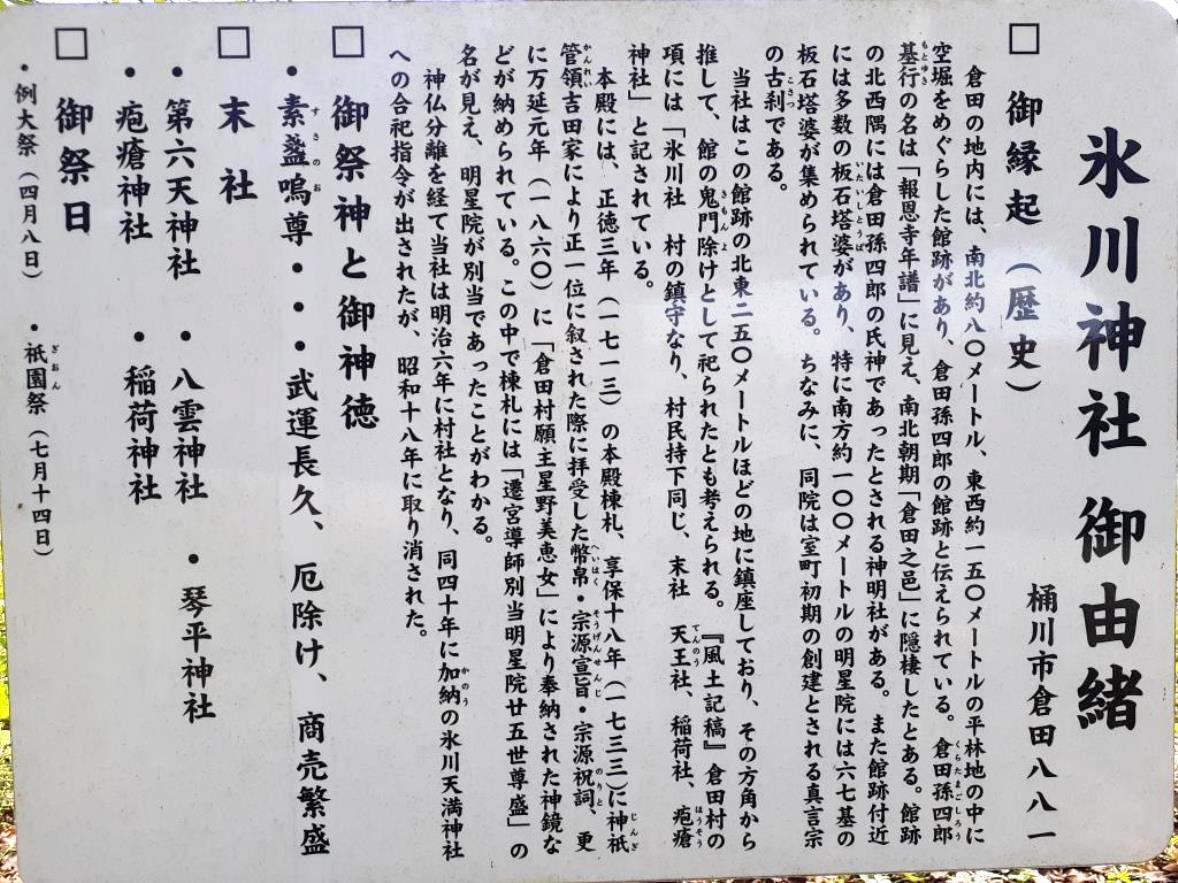 氷川神社 御由緒
桶川市倉田八八一
□ 御縁起（歴史）
倉田の地内には、南北約八〇メートル、東西約一五〇メートルの平林地の中に
空堀をめぐらした館跡があり、倉田孫四郎の館跡と伝えられている。倉田孫四郎
基行の名は「報恩寺年譜」に見え、南北朝期「倉田之邑」に隠棲したとある。館跡
の北西隅には倉田孫四郎の氏神であったとされる神明社がある。また館跡付近
には多数の板石塔婆があり、特に南方約一〇〇メートルの明星院には六七基の
板石塔婆が集められている。ちなみに、同院は室町初期の創建とされる真言宗
の古刹である。
当社はこの館跡の北東二五〇メートルほどの地に鎮座しており、その方角から
推して、館の鬼門除けとして祀られたとも考えられる。『風土記稿』倉田村の
項には「氷川社 村の鎮守なり、村民持下同じ、末社 天王社、稲荷社、疱瘡
神社」と記されている。
本殿には、正徳三年（一七一三）の本殿棟札、享保十八年（一七三三）に神祇
管領吉田家により正一位に叙された際に拝受した幣帛・宗源宣旨・宗源祝詞、更
に万延元年（一八六〇）に「倉田村願主星野美恵女」により奉納された神鏡な
どが納められている。この中で棟札には「遷宮導師別当明星院廿五世尊盛」の
名が見え、明星院が別当であったことがわかる。
神仏分離を経て当社は明治六年に村社となり、同四十年に加納の氷川天満神社
への合祀指令が出されたが、昭和十八年に取り消された。
□ 御祭神と御神徳
・素盞嗚尊・・・武運長久、厄除け、商売繁盛
□ 末社
・第六天神社 ・八雲神社 ・琴平神社
・疱瘡神社 ・稲荷神社
□ 御祭日
・例大祭（四月八日） ・祇園祭（七月十四日）